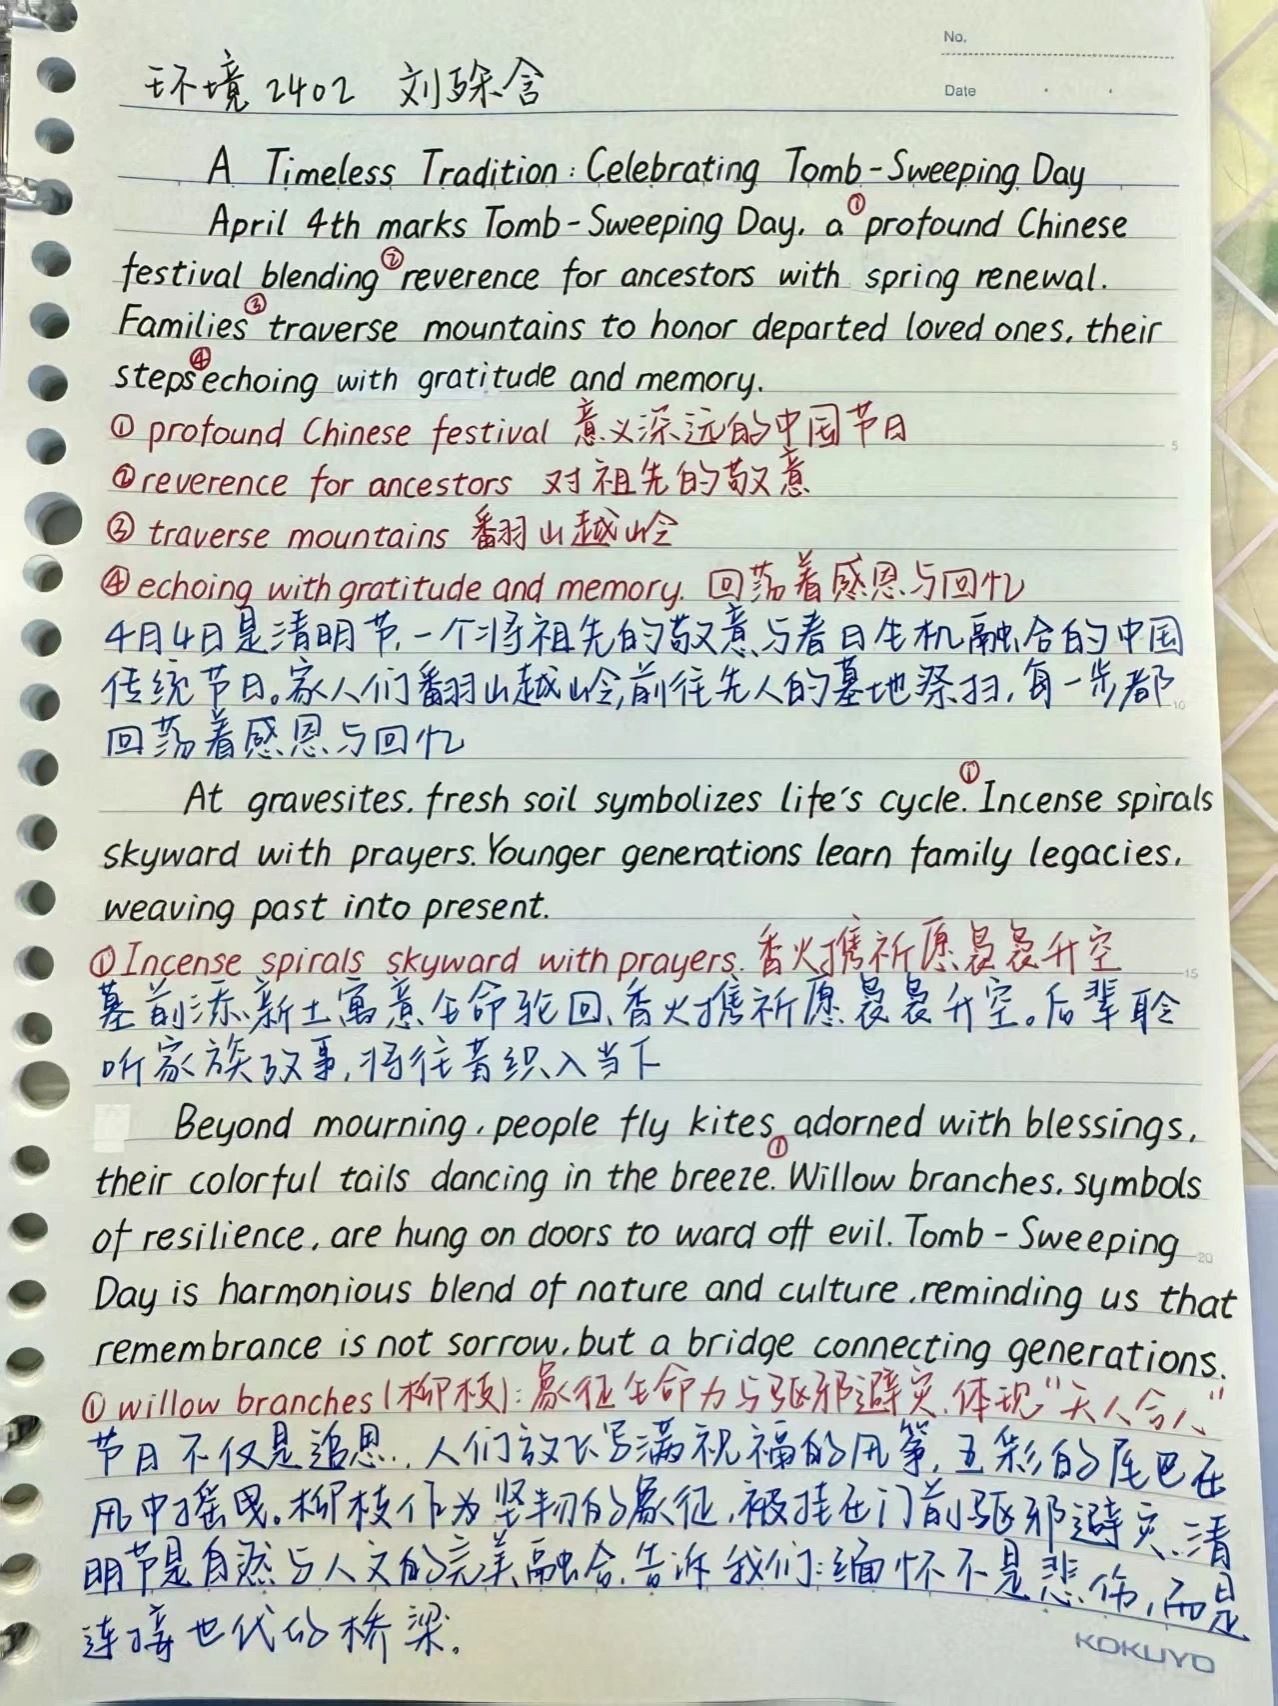 No.
Date
环境2402 刘琛含
A Timeless Tradition: Celebrating Tomb-Sweeping Day
April 4th marks Tomb-Sweeping Day, a ①profound Chinese
festival blending ②reverence for ancestors with spring renewal.
Families ③traverse mountains to honor departed loved ones, their
steps ④echoing with gratitude and memory.
① profound Chinese festival 意义深远的中国节日
5
② reverence for ancestors 对祖先的敬意
③ traverse mountains 翻山越岭
④ echoing with gratitude and memory. 回荡着感恩与回忆
4月4日是清明节,一个将祖先的敬意与春日生机融合的中国
传统节日。家人们翻山越岭,前往先人的墓地祭扫,每一步都
10
回荡着感恩与回忆
At gravesites, fresh soil symbolizes life's cycle. ①Incense spirals
skyward with prayers. Younger generations learn family legacies,
weaving past into present.
① Incense spirals skyward with prayers. 香火携祈愿袅袅升空
15
墓前添新土寓意生命轮回、香火携祈愿袅袅升空。后辈聆
听家族故事,将往昔织入当下
Beyond mourning, people fly kites adorned with blessings,
their colorful tails dancing in the breeze. ①Willow branches, symbols
of resilience, are hung on doors to ward off evil. Tomb-Sweeping
20
Day is harmonious blend of nature and culture, reminding us that
remembrance is not sorrow, but a bridge connecting generations.
① willow branches(柳枝):象征生命力与驱邪避灾,体现“天人合一”
节日不仅是追思.,人们放飞写满祝福的风筝,五彩的尾巴在
风中摇曳。柳枝作为坚韧的象征,被挂在门前驱邪避灾.清
明节是自然与人文的完美融合.告诉我们:缅怀不是悲伤,而是
连接世代的桥梁.
KOKUYO